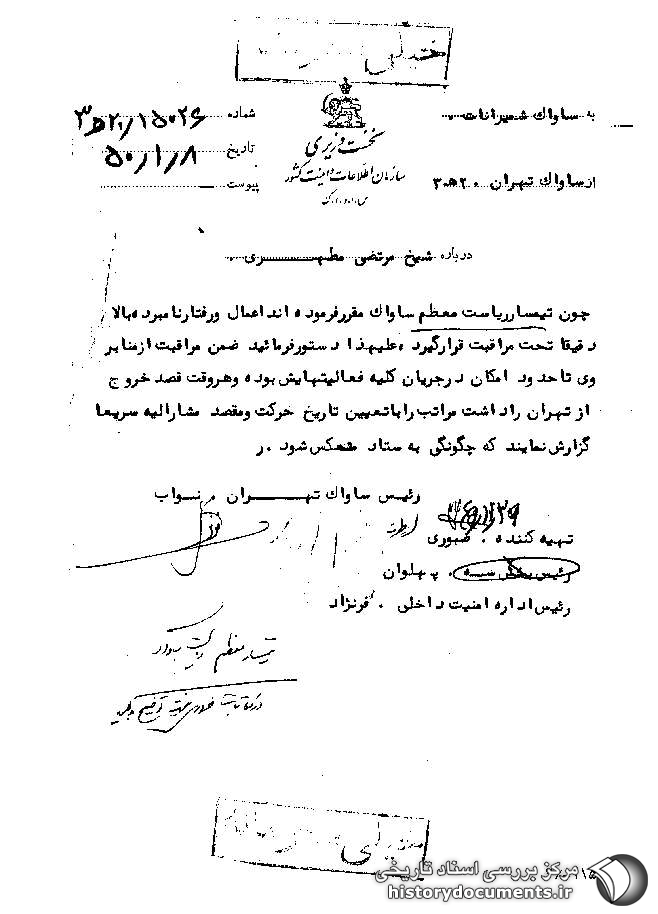 خیلی محرمانه
به ساواك شمیرانات .
شماره ۱۵۰۲۶/ ۲۰ه‍ ۳
نخست وزیری
تاریخ ۵۰/۱/۸
سازمان اطلاعات و امنیت کشور
س.ا.و.ا.ك
از ساواك تهران . ۲۰ه‍ ۳
پیوست
درباره شیخ مرتضی مطهری .
چون تیمسار ریاست معظم ساواك مقرر فرموده اند اعمال و رفتار نامبرده بالا
دقیقا تحت مراقبت قرار گیرد ، علیهذا دستور فرمائید ضمن مراقبت از منابر
وی تا حدود امکان در جریان کلیه فعالیتهایش بوده و هر وقت قصد خروج
از تهران را داشت مراتب را با تعیین تاریخ حرکت و مقصد مشارالیه سریعا
گزارش نمایند که چگونگی به ستاد منعکس شود . ر
رئیس ساواك تهران . نواب
تهیه کننده . صبوری
رئیس بخش سه . پهلوان
رئیس اداره امنیت داخلی . فرنژاد
تیمسار معظم ریاست ساواک
خیلی محرمانه
مرکز بررسی اسناد تاریخی
historydocuments.ir